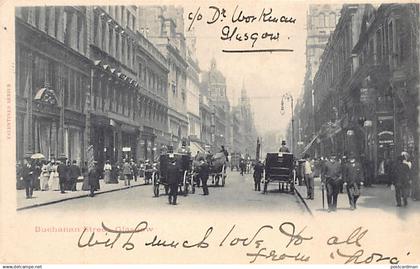 c/o Dr Workman
Glasgow.
VALENTINES SERIES
Buchanan Street, Glasgow
With much love to all
from
postcardman